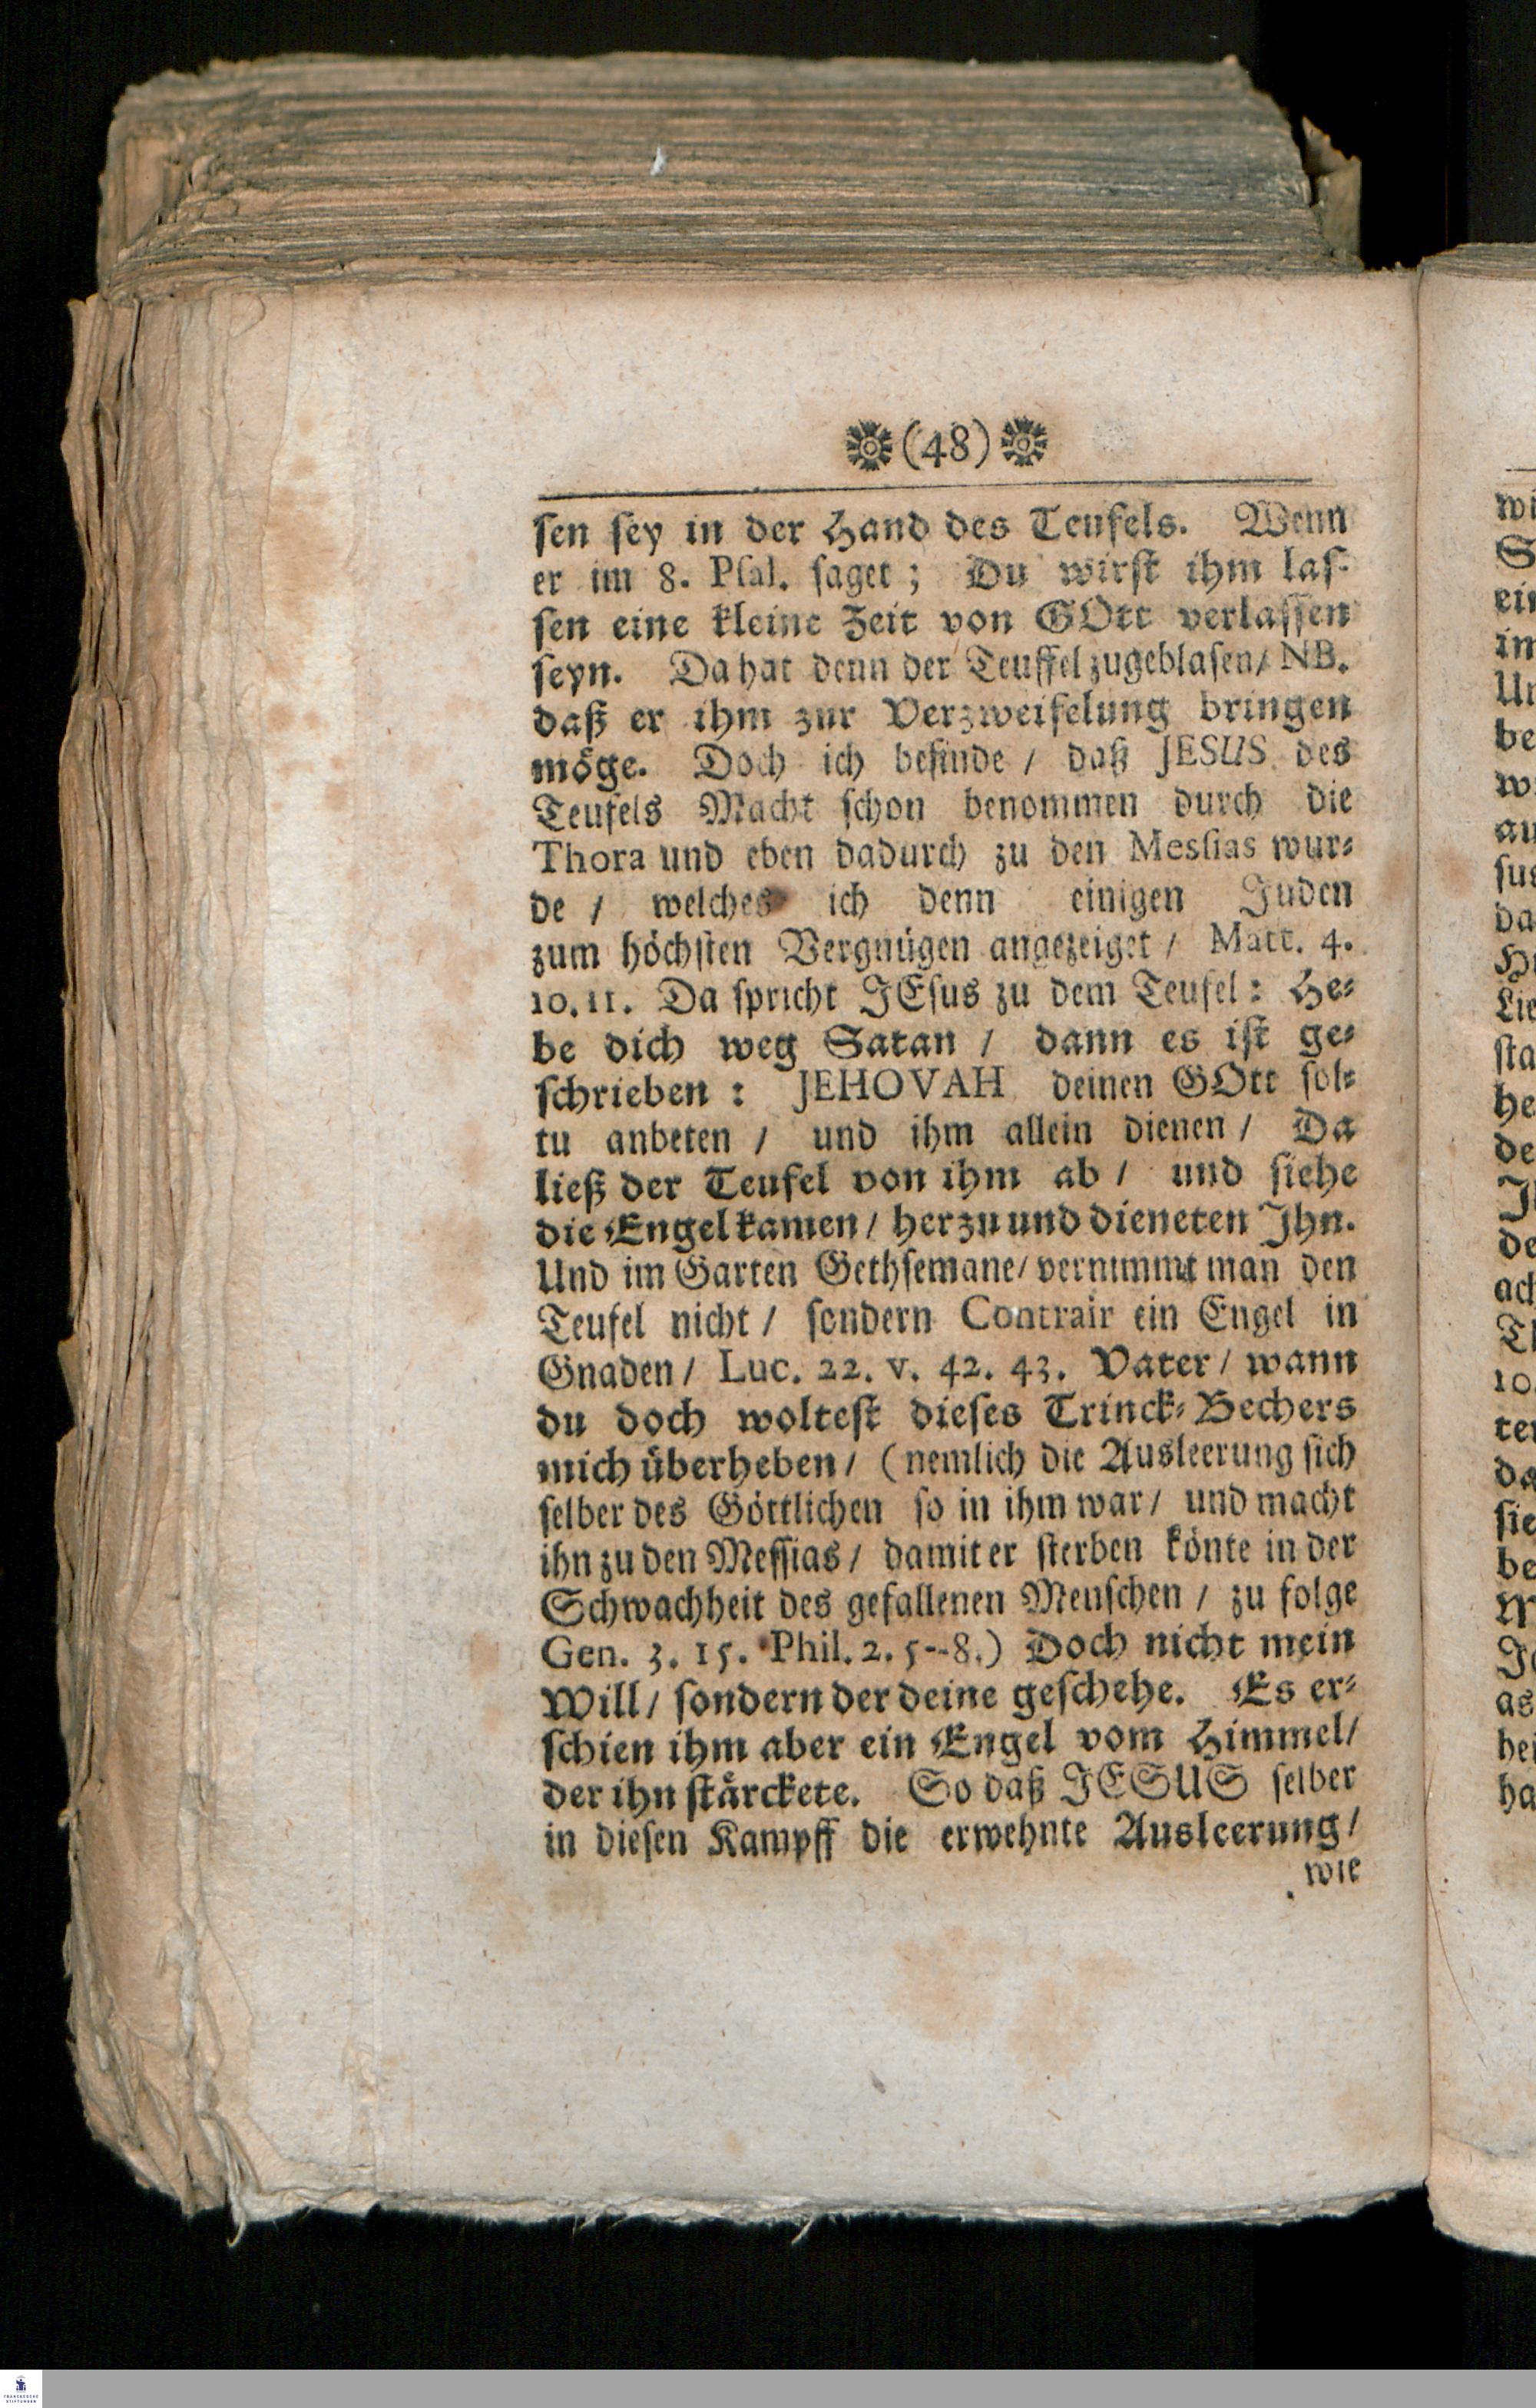 (48)
sen sey in der Hand des Teufels. Wenn
er im 8. Psal. saget; Du wirst ihm las-
sen eine kleine Zeit von GOtt verlassen
seyn. Da hat denn der Teuffel zugeblasen/ NB.
daß er ihm zur Verzweifelung bringen
möge. Doch ich befinde / daß JESUS des
Teufels Macht schon benommen durch die
Thora und eben dadurch zu den Messias wur-
de / welches ich denn einigen Juden
zum höchsten Vergnügen angezeiget / Matt. 4.
10. 11. Da spricht JEsus zu dem Teufel: He-
be dich weg Satan / dann es ist ge-
schrieben: JEHOVAH deinen GOtt sol-
tu anbeten / und ihm allein dienen / Da
ließ der Teufel von ihm ab / und siehe
die Engel kamen / herzu und dieneten Jhn.
Und im Garten Gethsemane/ vernimmt man den
Teufel nicht / sondern Contrair ein Engel in
Gnaden / Luc. 22. v. 42. 43. Vater / wann
du doch woltest dieses Trinck-Bechers
mich überheben / (nemlich die Ausleerung sich
selber des Göttlichen so in ihm war / und macht
ihn zu den Messias / damit er sterben könte in der
Schwachheit des gefallenen Menschen / zu folge
Gen. 3. 15. Phil. 2. 5--8.) Doch nicht mein
Will / sondern der deine geschehe. Es er-
schien ihm aber ein Engel vom Himmel /
der ihn stärckete. So daß JESUS selber
in diesen Kampff die erwehnte Ausleerung /
wie